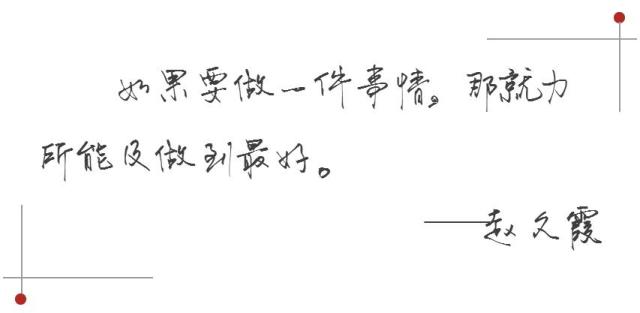 如果要做一件事情。那就力
所能及做到最好。
——赵久霞